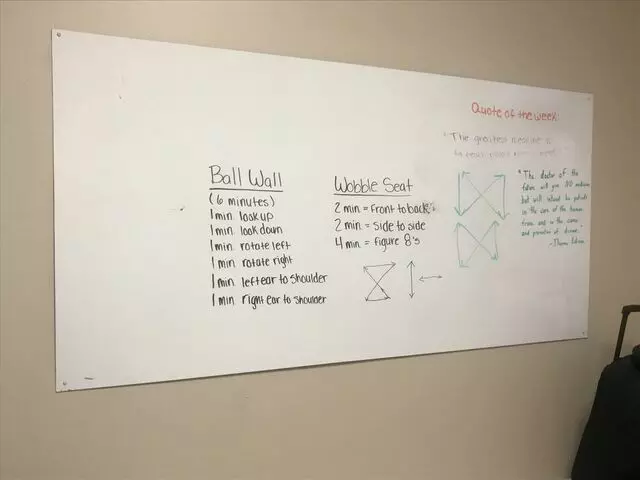 Quote of the week:
"The greatest medicine is
Ball Wall
(6 minutes)
1 min look up
1 min look down
1 min rotate left
1 min rotate right
1 min left ear to shoulder
1 min right ear to shoulder
Wobble Seat
2 min = Front to back
2 min = side to side
4 min = figure 8's
"The doctor of the
future will give NO medicine
but will interest his patients
in the care of the human
frame and in the cause
and prevention of disease."
- Thomas Edison